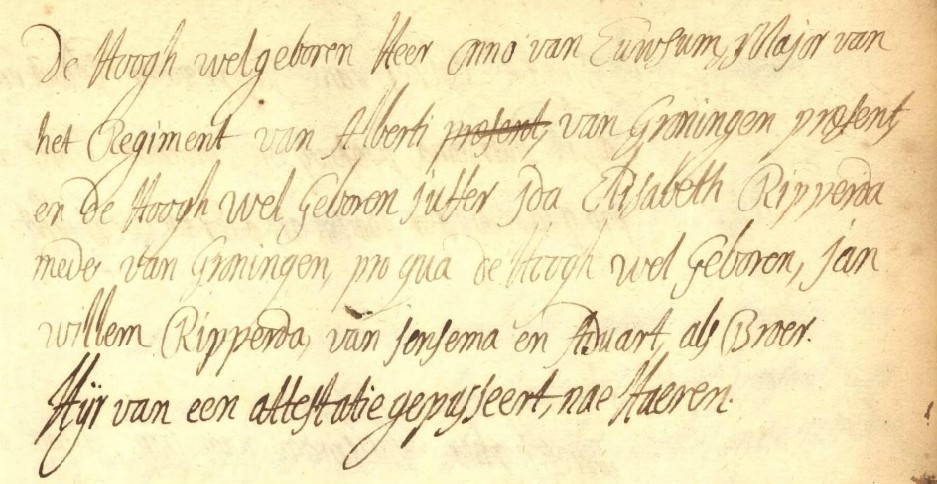 De Hoogh welgeboren Heer Onno van Euwsum, Major van
het Regiment van Alberti present, van Groningen present,
en de Hoogh wel Geboren juffer Ida Elisabeth Ripperda
mede van Groningen, pro qua de Hoogh wel Geboren, jan
willem Ripperda, van jensema en Aduart, als Broer.
Hijr van een attestatie gepasseert, nae Haeren.